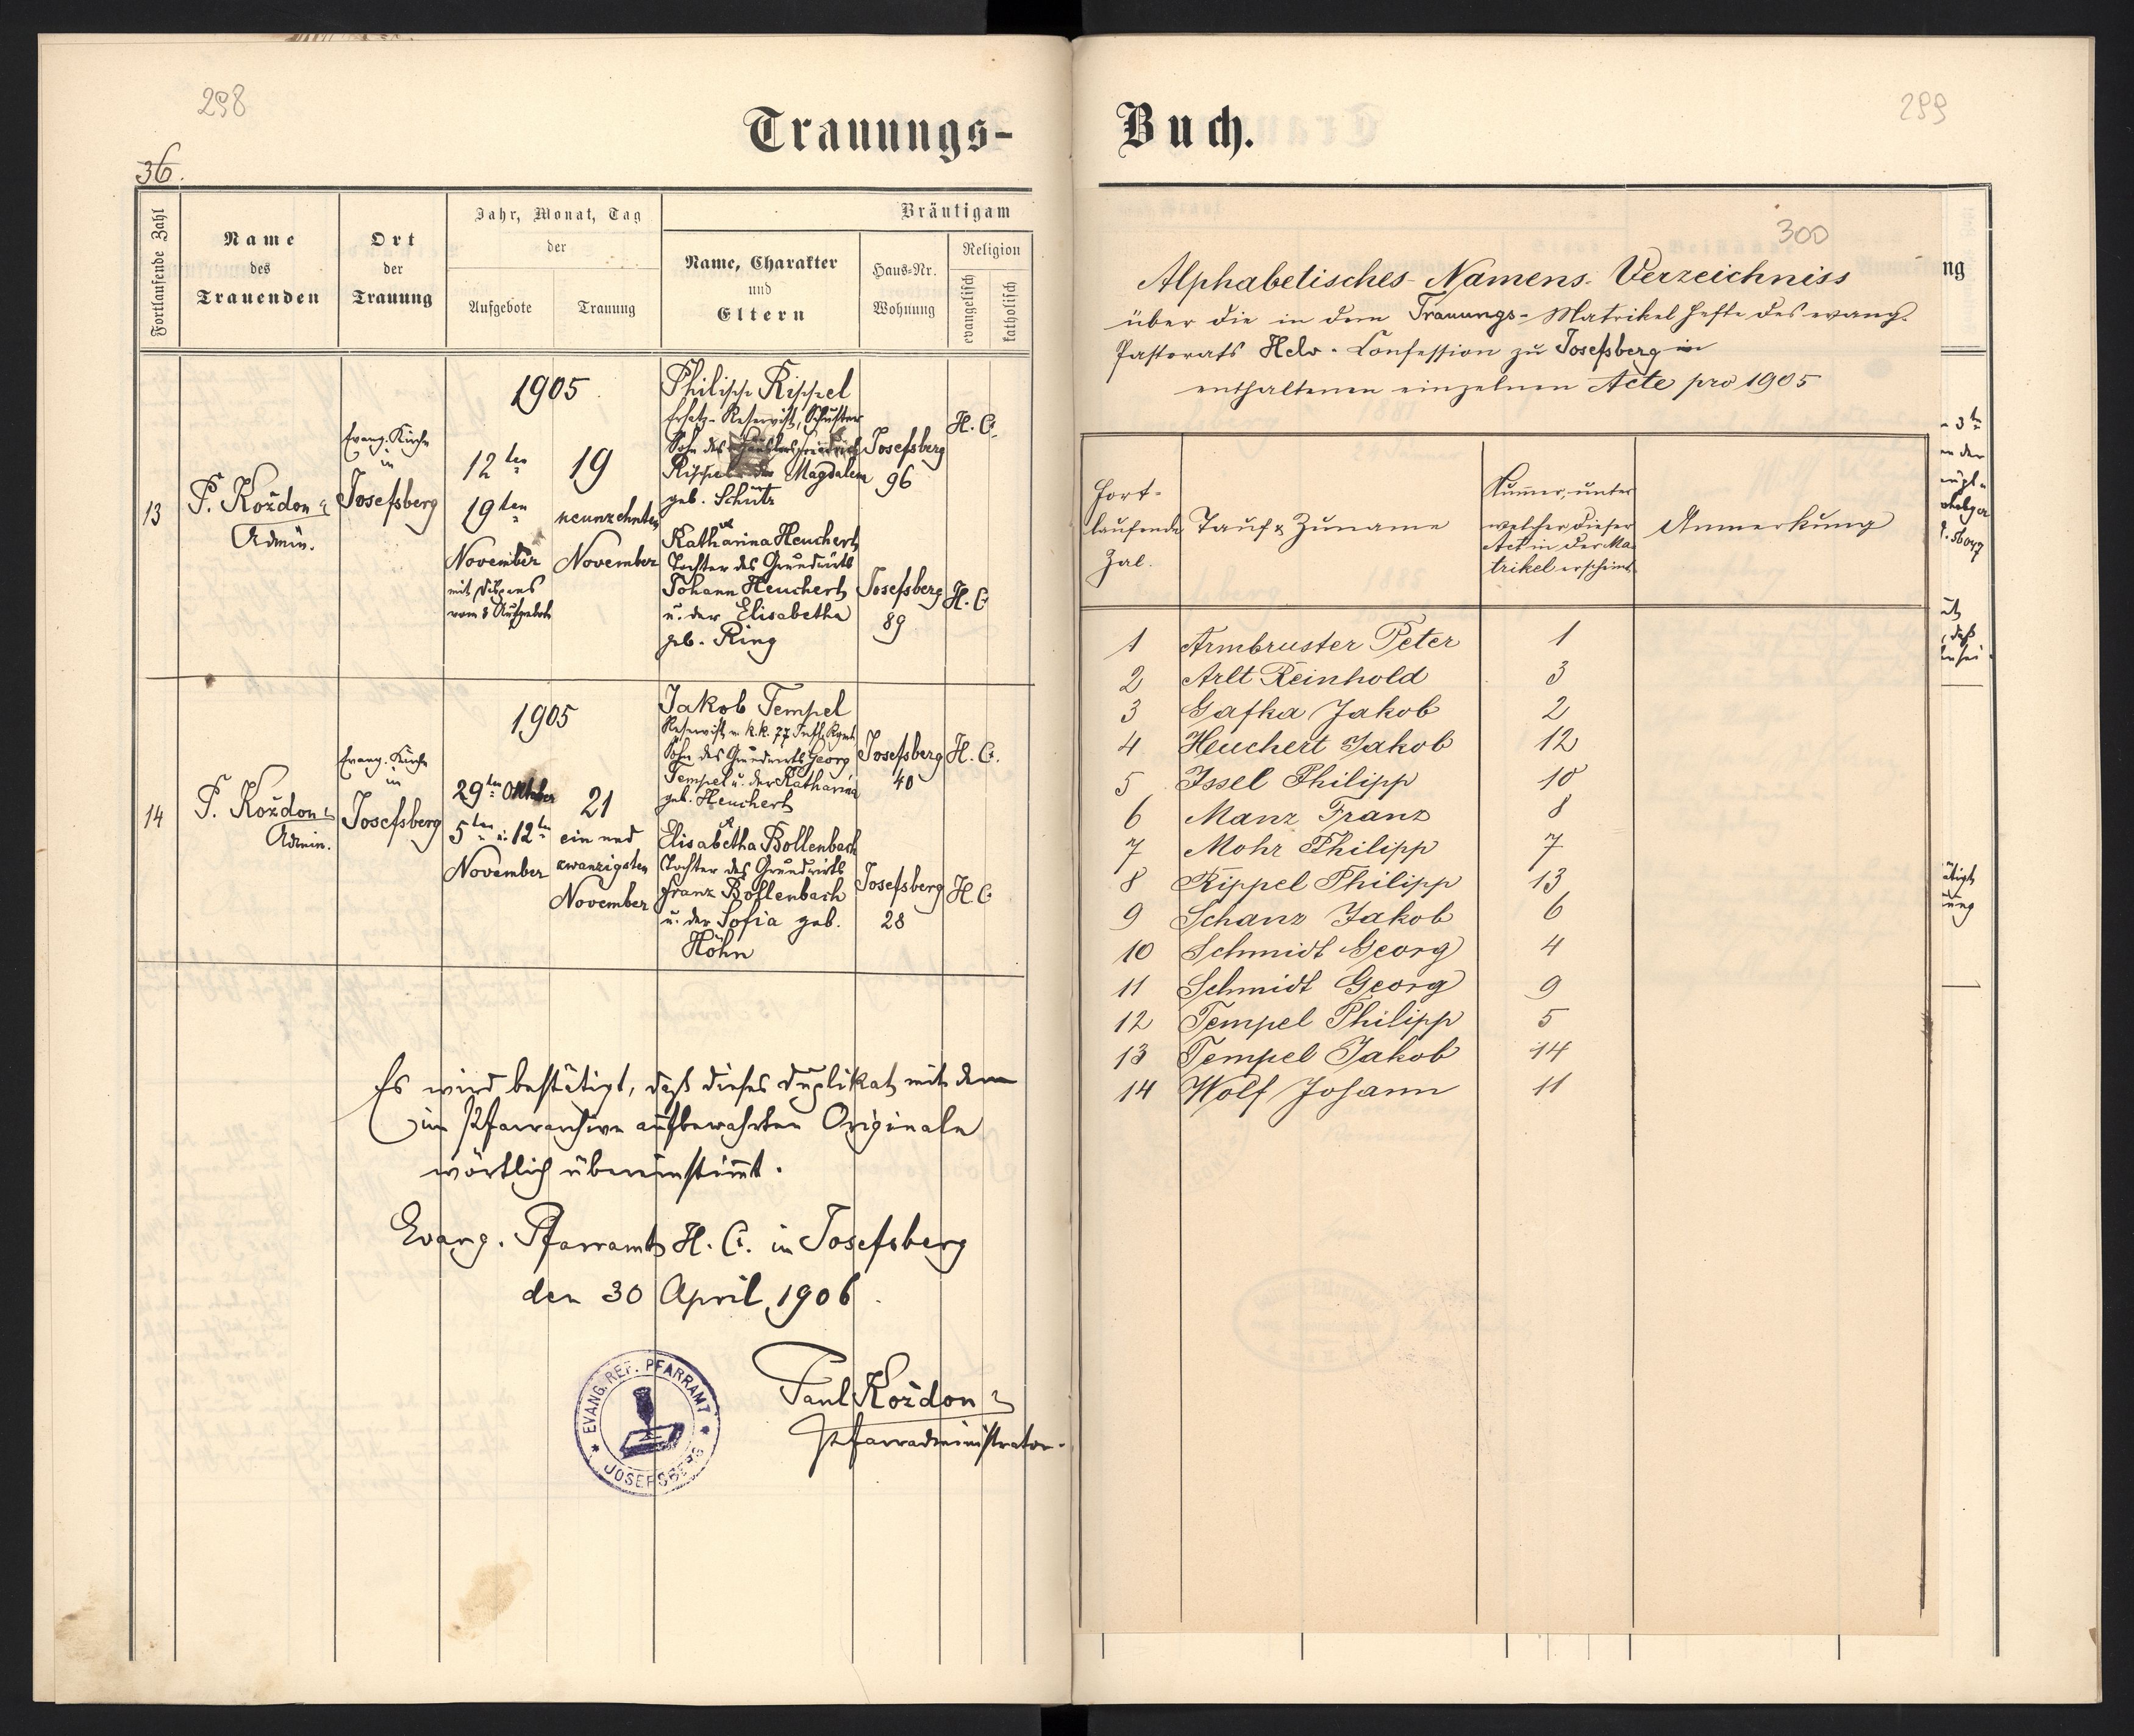 298
36.
Trauungs-
Fortlaufende Zahl
Name
des
Trauenden
Ort
der
Trauung
Jahr, Monat, Tag
der
Aufgebote
Trauung
Bräutigam
Name, Charakter
und
Eltern
Haus-Nr.
Wohnung
Religion
evangelisch
katholisch
13
P. Koždon
Admin.
Evang. Kirche
in
Josefsberg
1905
12ten
19ten
November
mit Dispens
vom 3 Aufgebote
19
neunzehnten
November
Philipp Rippel
Ersatz-Reservist, Schuster
Sohn des
Rippel Magdalena
geb. Schütz
Josefsberg
96
H. C.
Katharina Heuchert
Tochter des Grundwirts
Johann Heuchert
u. der Elisabetha
geb. Ring
Josefsberg
89
H. C.
14
P. Koždon
Admin.
Evang. Kirche
in
Josefsberg
1905
29ten Oktober
5ten u. 12ten
November
21
ein und
zwanzigsten
November
Jakob Tempel
Reservist k.k. 77
Sohn des Grundwirts Georg
Tempel u. der Katharina
geb. Heuchert
Josefsberg
40
H. C.
Elisabetha Bollenbach
Tochter des Grundwirts
Franz Bollenbach
u. der Sofia geb.
Höhn
Josefsberg
28
H. C
Es wird bestätigt, daß dieses Duplikat mit dem
im Pfarrarchive aufbewahrten Originale
wörtlich übereinstimmt.
Evang. Pfarramt H. C. in Josefsberg
den 30 April 1906.
EVANG. REF. PFARRAMT
JOSEFSBERG
Paul Koždon
Pfarradministrator.
299
Buch.
ng
300
Alphabetisches-Namens-Verzeichniss
über die in dem Trauungs-Matrikel Hefte des evang.
Pastorats Helv. Confession zu Josefsberg
enthaltenen einzelnen Acte pro 1905
Fort-
laufende
Zal.
Tauf & Zuname
Numer, unter
welcher dieser
Act in der Ma-
trikel erscheint
Anmerkung
1 Armbruster Peter 1
2 Arlt Reinhold 3
3 Gafka Jakob 2
4 Heuchert Jakob 12
5 Issel Philipp 10
6 Manz Franz 8
7 Mohr Philipp 7
8 Rippel Philipp 13
9 Schanz Jakob 6
10 Schmidt Georg 4
11 Schmidt Georg 9
12 Tempel Philipp 5
13 Tempel Jakob 14
14 Wolf Johann 11